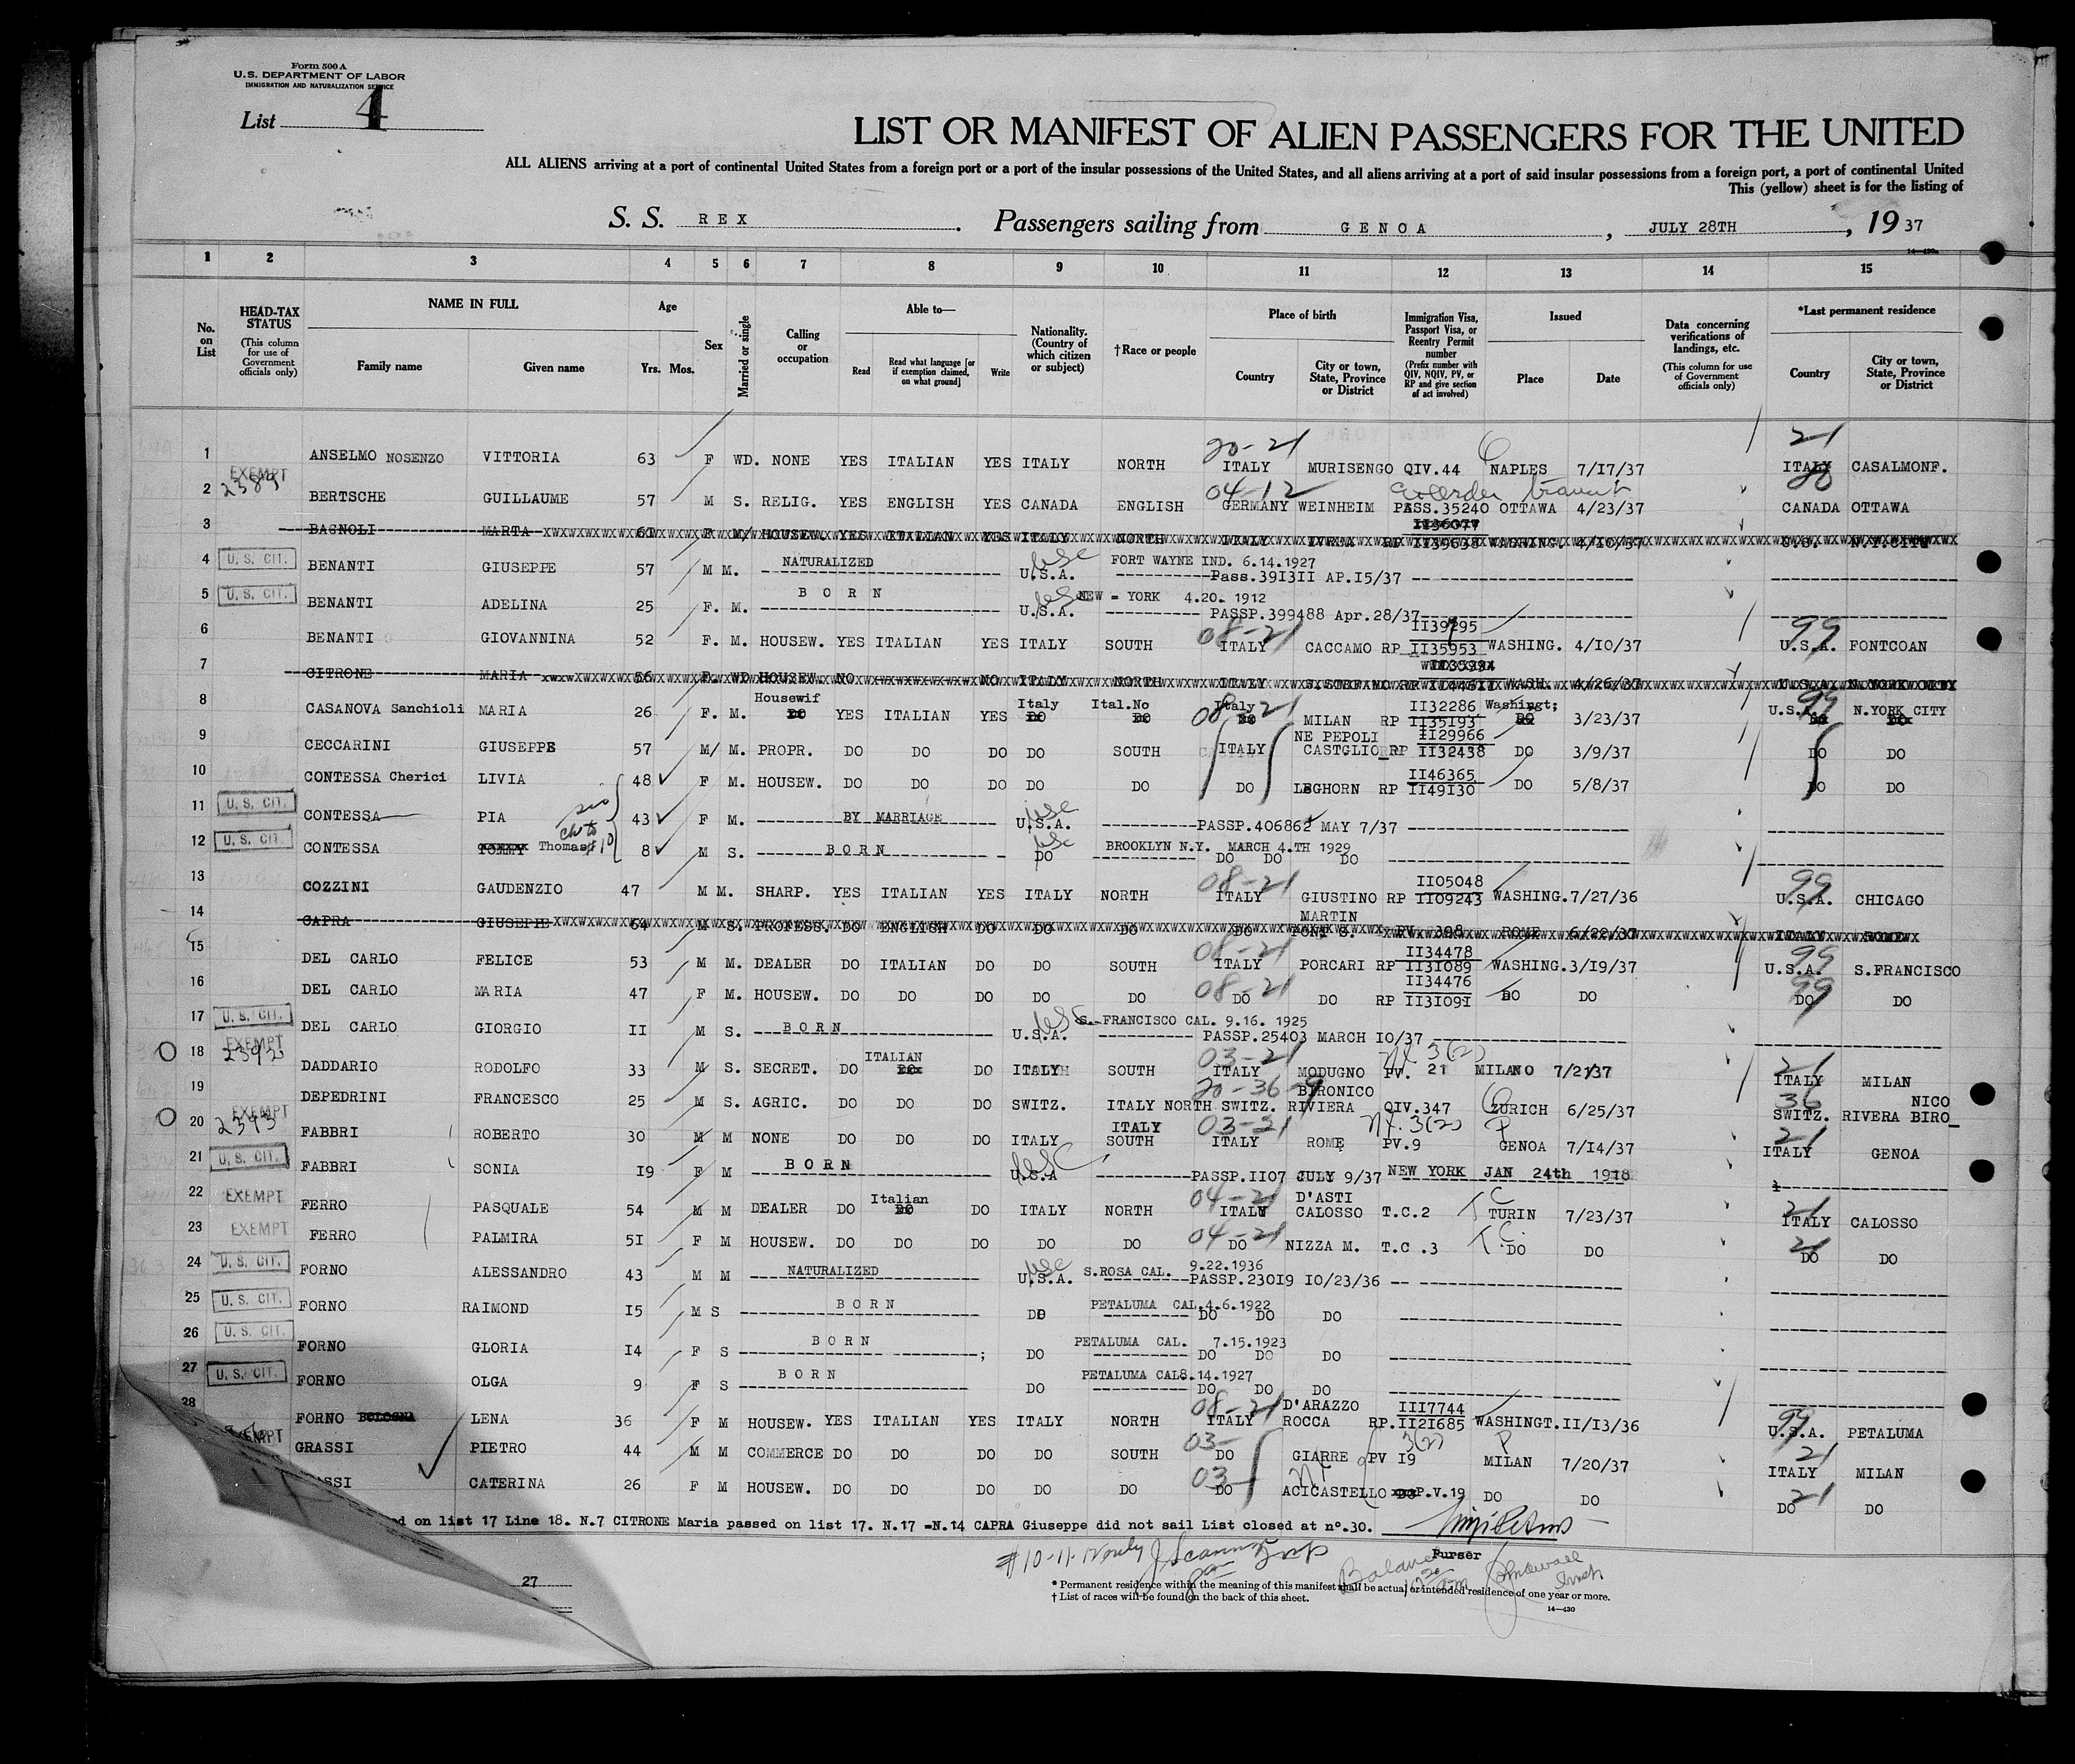 Form 500 A
U.S. DEPARTMENT OF LABOR
IMMIGRATION AND NATURALIZATION SERVICE
List 4
LIST OR MANIFEST OF ALIEN PASSENGERS FOR THE UNITED
ALL ALIENS arriving at a port of continental United States from a foreign port or a port of the insular possessions of the United States, and all aliens arriving at a port of said insular possessions from a foreign port, a port of continental United
This (yellow) sheet is for the listing of
S. S. REX. Passengers sailing from GENOA, JULY 28TH, 19 37
14-430a
1 2 3 4 5 6 7 8 9 10 11 12 13 14 15
No. on List
HEAD-TAX STATUS (This column for use of Government officials only)
NAME IN FULL
Family name Given name
Age Yrs. Mos.
Sex
Married or single
Calling or occupation
Able to— Read Read what language [or if exemption claimed, on what ground] Write
Nationality. (Country of which citizen or subject)
†Race or people
Place of birth Country City or town, State, Province or District
Immigration Visa, Passport Visa, or Reentry Permit number (Prefix number with QIV, NQIV, PV, or RP and give section of act involved)
Issued Place Date
Data concerning verifications of landings, etc. (This column for use of Government officials only)
*Last permanent residence Country City or town, State, Province or District
20-21 21
1 ANSELMO NOSENZO VITTORIA 63 F WD. NONE YES ITALIAN YES ITALY NORTH ITALY MURISENGO QIV.44 NAPLES 7/17/37 ITALY CASALMONF.
EXEMPT 2389 04-12 transit 80
2 BERTSCHE GUILLAUME 57 M S. RELIG. YES ENGLISH YES CANADA ENGLISH GERMANY WEINHEIM PASS.35240 OTTAWA 4/23/37 CANADA OTTAWA
3 BAGNOLI MARTA 61 F M/ HOUSEW. YES ITALIAN YES ITALY NORTH ITALY IVREA RP II35638 WASHING. 4/10/37 U.S. N.Y.CITY
4 U. S. CIT. BENANTI GIUSEPPE 57 M M. NATURALIZED usc U.S.A. FORT WAYNE IND. 6.14.1927 Pass.39I3II AP.I5/37
5 U. S. CIT. BENANTI ADELINA 25 F. M. BORN usc U.S.A. NEW - YORK 4.20. 1912 PASSP.399488 Apr.28/37
6 BENANTI GIOVANNINA 52 F. M. HOUSEW. YES ITALIAN YES ITALY SOUTH 08-21 ITALY CACCAMO RP II39295 II35953 WASHING. 4/I0/37 99 U.S.A. FONTCOAN
7 CITRONE MARIA 56 F. WD HOUSEW. NO NO ITALY NORTH ITALY S.STEFANO RP II446II WASH. 4/26/37 U.S.A. N.YORK CITY
8 CASANOVA Sanchioli MARIA 26 F. M. Housewif YES ITALIAN YES Italy Ital.No 08-21 Italy MILAN RP II32286 II35193 Washingt; 3/23/37 99 U.S.A. N.YORK CITY
9 CECCARINI GIUSEPPE 57 M/ M. PROPR. DO DO DO DO SOUTH ITALY NE PEPOLI CASTGLIO RP II29966 II32438 DO 3/9/37 DO DO
10 CONTESSA Cherici LIVIA 48 F M. HOUSEW. DO DO DO DO DO DO LEGHORN RP II46365 II49I30 DO 5/8/37 DO DO
11 U. S. CIT. CONTESSA PIA 43 F M. BY MARRIAGE usc U.S.A. PASSP.406862 MAY 7/37
12 U. S. CIT. CONTESSA TOMMY Thomas 8 M S. BORN usc DO BROOKLYN N.Y. MARCH 4.TH 1929 DO DO DO
13 COZZINI GAUDENZIO 47 M M. SHARP. YES ITALIAN YES ITALY NORTH 08-21 ITALY GIUSTINO RP II05048 II09243 WASHING. 7/27/36 99 U.S.A. CHICAGO
14 CAPRA GIUSEPPE 64 M S. PROFESS. DO ENGLISH DO DO DO DO MARTIN PONT S. PV. 398 ROME 6/22/37 ITALY ROME
15 DEL CARLO FELICE 53 M M. DEALER DO ITALIAN DO DO SOUTH 08-21 ITALY PORCARI RP II34478 II3I089 WASHING. 3/I9/37 99 U.S.A. S.FRANCISCO
16 DEL CARLO MARIA 47 F M. HOUSEW. DO DO DO DO DO 08-21 DO DO RP II34476 II3I09I DO DO 99 DO DO
17 U. S. CIT. DEL CARLO GIORGIO II M S. BORN usc U.S.A. S.-FRANCISCO CAL. 9.16. 1925 PASSP.25403 MARCH I0/37
18 EXEMPT 2392 DADDARIO RODOLFO 33 M S. SECRET. DO ITALIAN DO ITALY SOUTH 03-21 ITALY MODUGNO 3(2) PV. 21 MILANO 7/21/37 21 ITALY MILAN
19 DEPEDRINI FRANCESCO 25 M S. AGRIC. DO DO DO SWITZ. ITALY NORTH 20-36-9 SWITZ. BIRONICO RIVIERA QIV.347 ZURICH 6/25/37 36 SWITZ. NICO RIVERA BIRO_
20 EXEMPT 2393 FABBRI ROBERTO 30 M M NONE DO DO DO ITALY ITALY SOUTH 03-21 ITALY ROME 3(2) PV.9 P GENOA 7/14/37 21 ITALY GENOA
21 U. S. CIT. FABBRI SONIA I9 F M BORN usc U.S.A PASSP.II07 JULY 9/37 NEW YORK JAN 24th 1918
22 EXEMPT FERRO PASQUALE 54 M M DEALER DO Italian DO ITALY NORTH 04-21 ITALY D'ASTI CALOSSO T.C.2 TC TURIN 7/23/37 21 ITALY CALOSSO
23 EXEMPT FERRO PALMIRA 5I F M HOUSEW. DO DO DO DO DO 04-21 DO NIZZA M. T.C .3 T.C. DO DO 21 DO DO
24 U. S. CIT. FORNO ALESSANDRO 43 M M NATURALIZED usc U.S.A. S.ROSA CAL. 9.22.1936 PASSP.230I9 I0/23/36
25 U. S. CIT. FORNO RAIMOND I5 M S BORN DO PETALUMA CAL.4.6.1922 DO DO DO
26 U. S. CIT. FORNO GLORIA I4 F S BORN ; DO PETALUMA CAL. 7.15.1923 DO DO DO
27 U. S. CIT. FORNO OLGA 9 F S BORN DO PETALUMA CAL8.14.1927 DO DO DO
28 FORNO BOLOGNA LENA 36 F M HOUSEW. YES ITALIAN YES ITALY NORTH 08-21 ITALY D'ARAZZO ROCCA RP. III7744 II2I685 WASHINGT. II/I3/36 99 U.S.A. PETALUMA
EXEMPT GRASSI PIETRO 44 M M COMMERCE DO DO DO DO SOUTH 03- DO GIARRE 3(2) PV I9 P MILAN 7/20/37 21 ITALY MILAN
CATERINA 26 F M HOUSEW. DO DO DO DO DO 03- DO ACICASTELLO P.V.19 DO DO 21 DO DO
on list 17 Line 18. N.7 CITRONE Maria passed on list 17. N.17 -N.14 CAPRA Giuseppe did not sail List closed at n°.30.
Purser
#10-11-12 only
27
* Permanent residence within the meaning of this manifest shall be actual or intended residence of one year or more.
† List of races will be found on the back of this sheet.
14-430